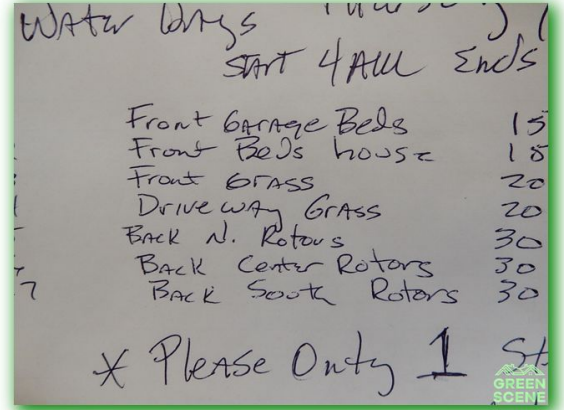 Water Days Thursday
Start 4AM Ends
Front Garage Beds 15
Front Beds house 15
Front Grass 20
Driveway Grass 20
Back N. Rotors 30
Back Center Rotors 30
7 Back South Rotors 30
* Please Only 1 St
GREEN
SCENE